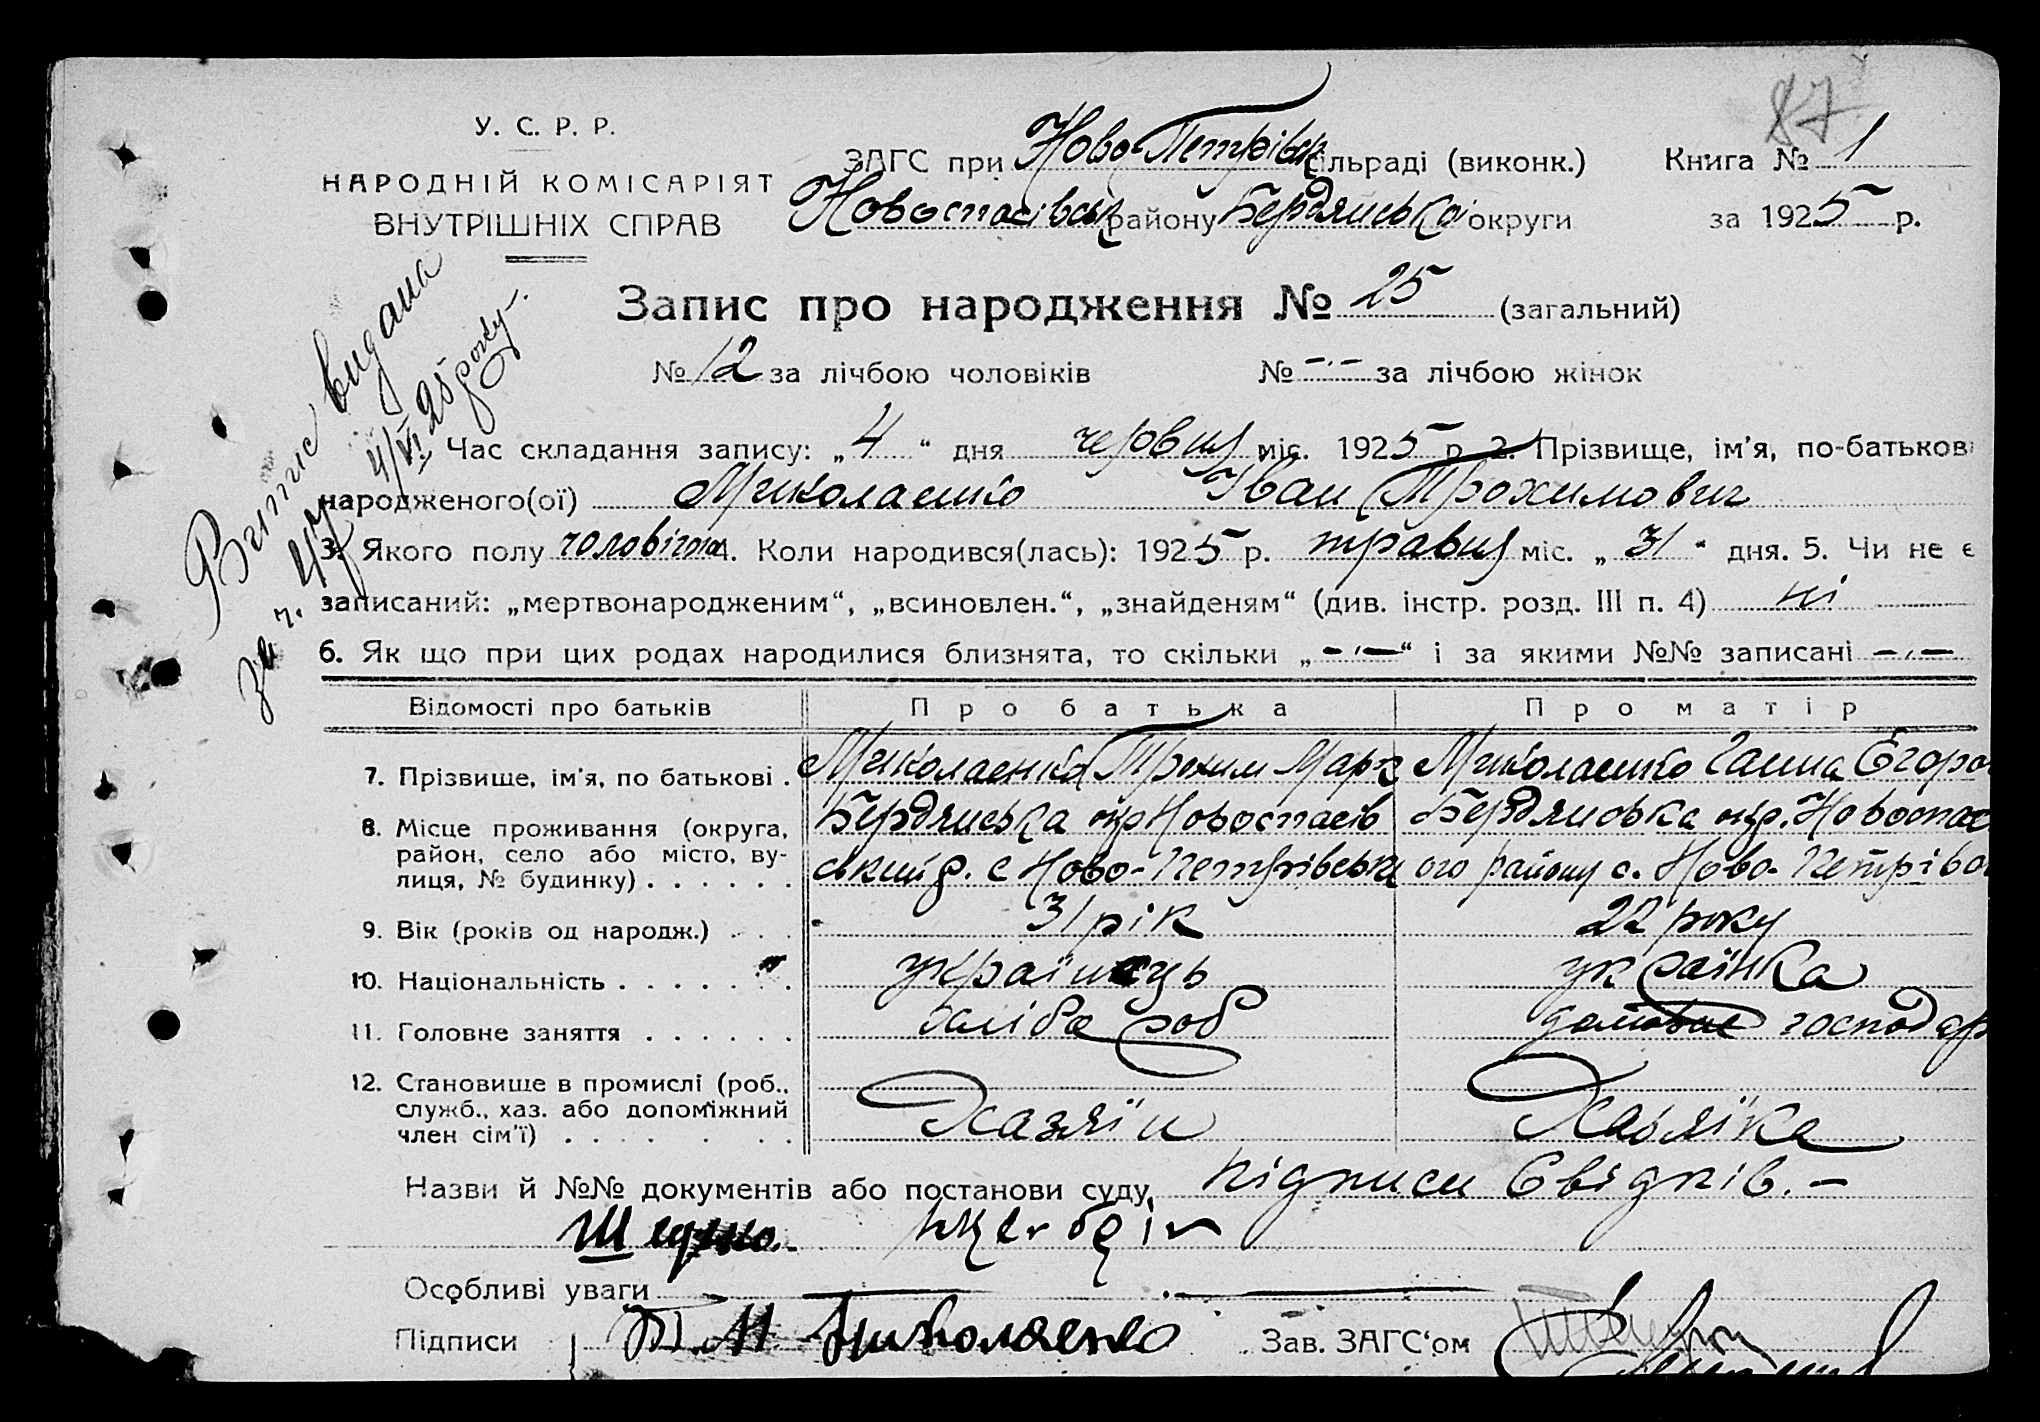 87
У. С. Р. Р.
НАРОДНІЙ КОМІСАРІЯТ
ВНУТРІШНІХ СПРАВ
ЗАГС при Ново-Петрівск сільраді (виконк.) Книга № 1
Новоспасівськ району Бердянської округи за 1925 р.
Запис про народження № 25 (загальний)
№ 12 за лічбою чоловіків № -.- за лічбою жінок
Витис видана
за ч. 47 4/VI 25 року.
Час складання запису: „4“ дня червця міс. 1925 р. 2. Прізвище, ім'я, по-батькові
народженого(ої) Миколаєнко Іван Трохимович
3. Якого полу чоловічого 4. Коли народився(лась): 1925 р. травця міс. „31“ дня. 5. Чи не є
записаний: „мертвонародженим“, „всиновлен.“, „знайденям“ (див. інстр. розд. III п. 4) ні
6. Як що при цих родах народилися близнята, то скільки „-.-“ і за якими №№ записані -.-
Відомості про батьків Про батька Про матір
7. Прізвище, ім'я, по батькові . Миколаєнко Трохим Марк Миколаєнко Ганна Єгоров
8. Місце проживання (округа, район, село або місто, вулиця, № будинку) . . . . . . Бердянська окр Новоспасів Бердянська окр. Новоспас
ський р. с Ново-Петрівськ ого району с. Ново-Петрівс
9. Вік (років од народж.) . . . 31 рік 22 року
10. Національність . . . . . . . українець українка
11. Головне заняття . . . . . . хліба роб домове господар
12. Становище в промислі (роб., служб., хаз. або допоміжний член сім'ї) . . . . . . Хазяїн Хазяїка
Назви й №№ документів або постанови суду, підписи Свідків. -
Особливі уваги
Підписи Т. М Миколаєнко Зав. ЗАГС'ом